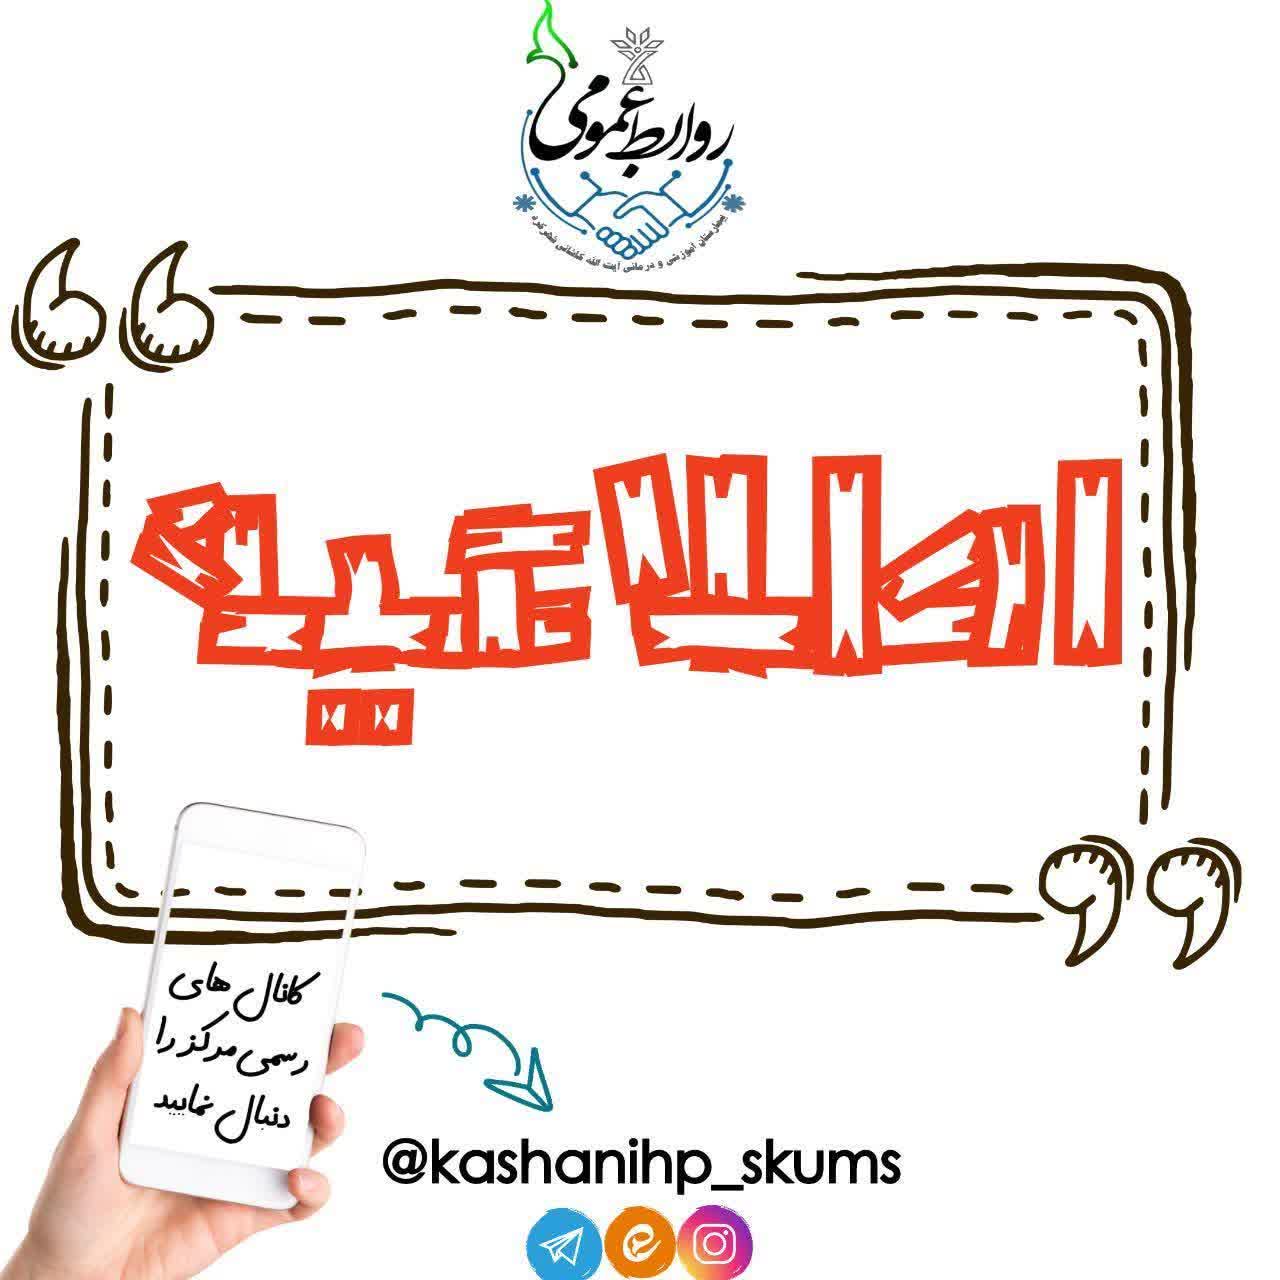 روابط عمومی
بیمارستان آموزشی و درمانی آیت الله کاشانی شهرکرد
اطلاعیه
کانال های
رسمی مرکز را
دنبال نمایید
@kashanihp_skums